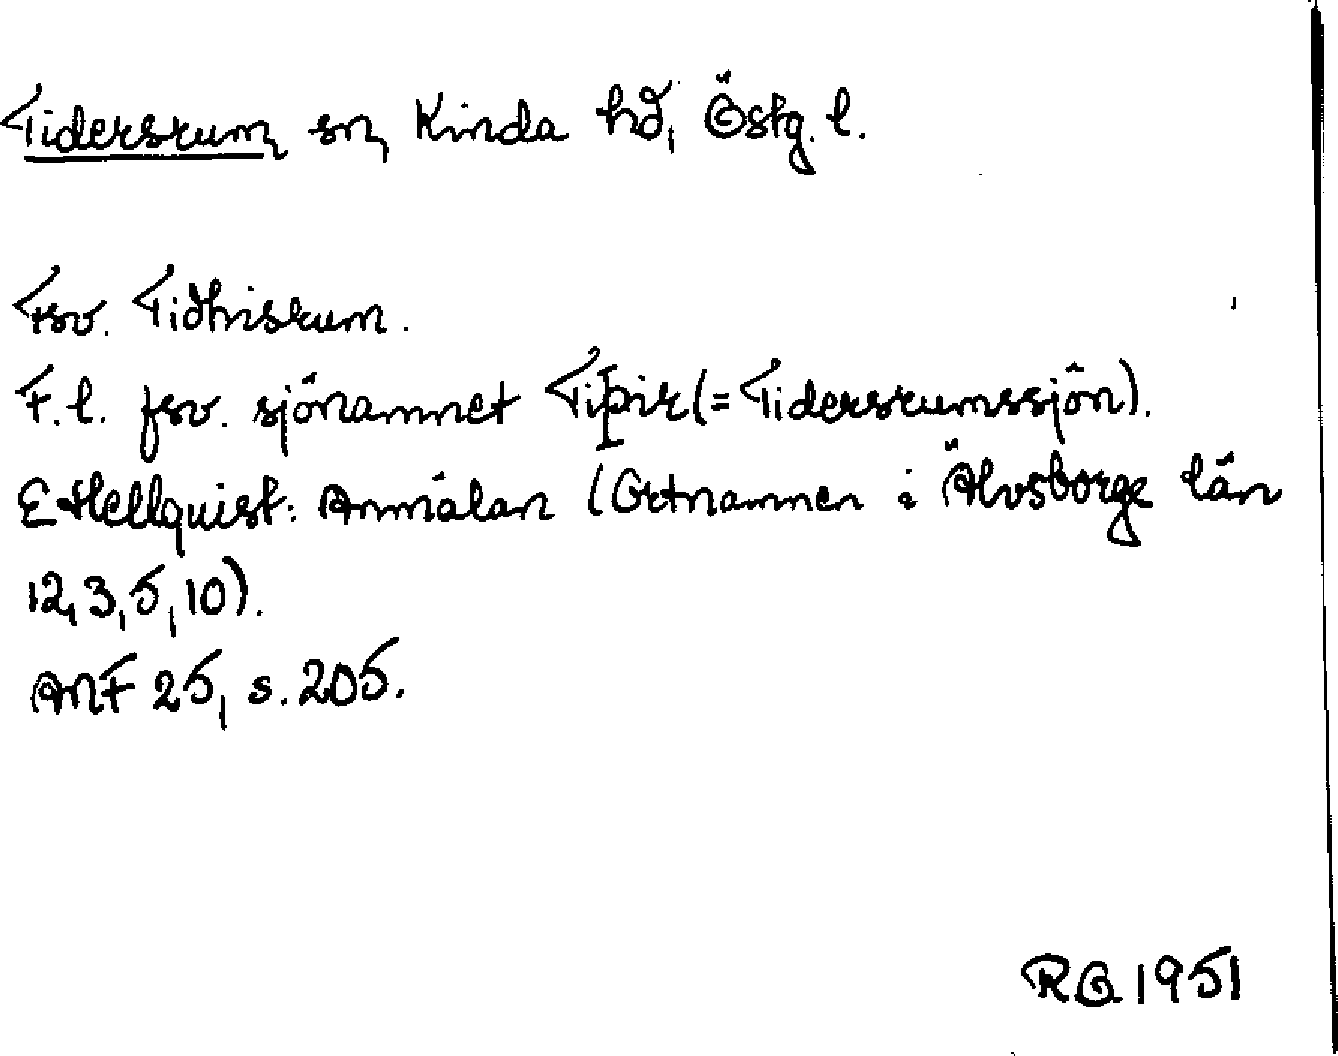 Tidersrum, sn, Kinda hd, Östg. l.
Fsv. Tidhrisrum.
F. l. fsv. sjönamnet Tiþir (= Tidersrumssjön).
E Hellquist: Anmälan (Ortnamnen i Älvsborgs län
12, 3, 5, 10).
ANF 25, s. 205.
RG 1951